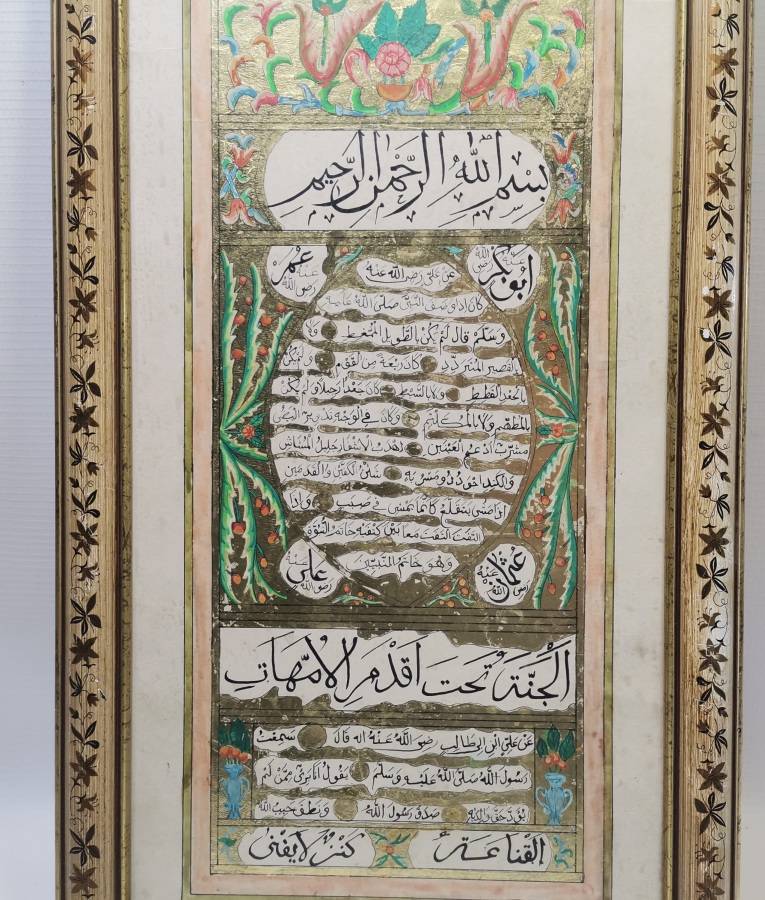 بسم الله الرحمن الرحيم
ابو بكر رضي الله عنه
عمر رضي الله عنه
عن علي رضي الله عنه
كان اذا وصف النبي صلى الله عليه
وسلم قال لم يكن بالطويل الممغط ولا
بالقصير المتردد كان ربعة من القوم ولم يكن
بالجعد القطط ولا بالسبط كان جعدا رجلا ولم يكن
بالمطهم ولا بالمكلثم وكان في الوجه تدوير ابيض
مشرب ادعج العينين اهدب الاشفار جليل المشاش
والكتد اجرد ذو مسربة شثن الكفين والقدمين
اذا مشى يتقلع كانما يمشي في صبب واذا
التفت التفت معا بين كتفيه خاتم النبوة
وهو خاتم النبيين
عثمان رضي الله عنه
علي رضي الله عنه
اَلْجَنَّةُ تَحْتَ اَقْدَمِ الْاُمَّهَاتِ
عن علي ابن ابي طالب رضي الله عنه انه قال سمعت
رسول الله صلى الله عليه وسلم يقول انا بريء ممن لم
حق والديه صدق رسول الله ونطق حبيب الله
القناعة كنز لا يفنى